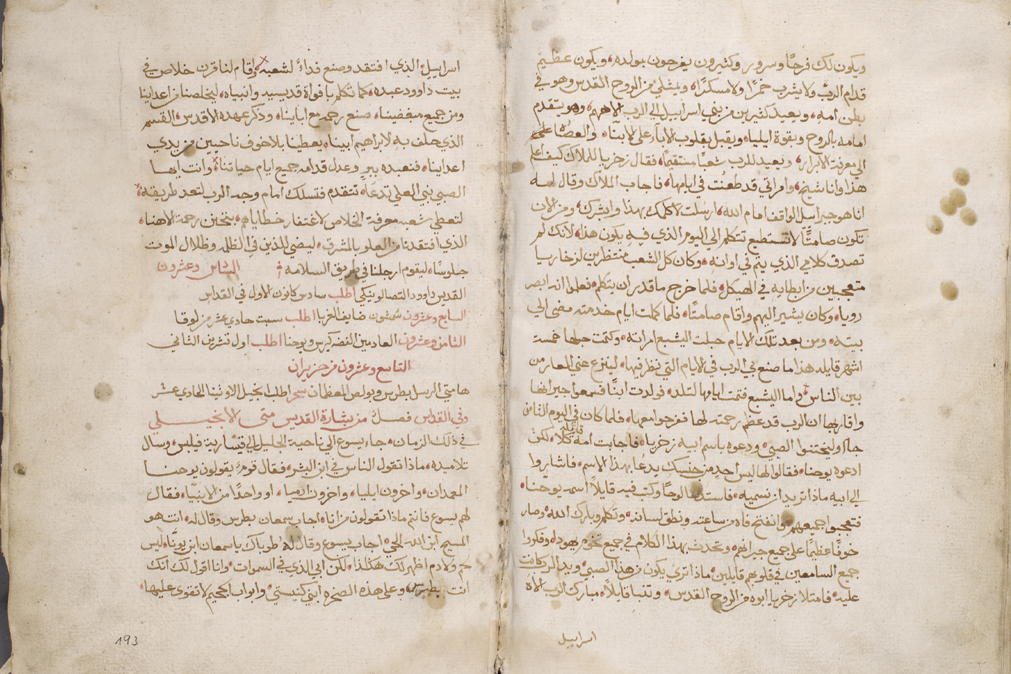 ويكون لك فرحًا وسرور وكثيرون يفرحون بمولده، ويكون عظيم
قدام الرب ولا يشرب خمرًا ولا مسكرًا، ويمتلي من الروح القدس وهو في
بطن امه، ويعيد كثيرين من بني اسراييل الي الرب الاههم، وهو يتقدم
امامه بالروح وبقوة ايليا، ويقبل بقلوب الابا علي الابنا، والعصاة الي
معرفة الابرار، ويعد للرب شعبًا مستقيمًا، فقال زخريا للملاك كيف اعلم
هذا وانا شيخ، وامراتي قد طعنت في ايامها، فاجاب الملاك وقال له
انا هو جبراييل الواقف امام الله، ارسلت لاكلمك بهذا وابشرك، ومن الان
تكون صامتًا لا تستطيع تتكلم الي اليوم الذي فيه يكون هذا، لانك لم
تصدق كلامي الذي يتم في اوانه، وكان كل الشعب منتظرين لزخاريا
متعجبين من ابطايه في الهيكل، فلما خرج ما قدر ان يتكلم، فعلموا انه ابصر
رويا، وكان يشير اليهم واقام صامتًا، فلما كملت ايام خدمته مضي الي
بيته، ومن بعد تلك الايام حبلت اليشبع امراته، وكتمت حبلها خمسة
اشهر قايله هذا ما صنع بي الرب في الايام التي نظر فيها، لينزع عني العار من
بين الناس، واما اليشبع فتمت ايامها لتلد، فولدت ابنًا فسمعوا جيرانها
واقاربها ان الرب قد عظم رحمته لها ففرحوا معها، فلما كان في اليوم الثامن
جاوا ليختنوا الصبي، ودعوه باسم ابيه زخريا، فاجابت امه قايلة كلا، لكن
ادعوه يوحنا، فقالوا لها ليس احد من جنسك يدعا بهذا الاسم، فاشاروا
الي ابيه ماذا تريد ان نسميه، فاستدعا لوحًا وكتب فيه قايلًا اسمه يوحنا،
فتعجبوا اجميعهم، وانفتح فاه من ساعته ونطق لسانه، وتكلم وبارك الله، وصار
خوفًا عظيمًا علي جميع جيرانهم، وتحدث بهذا الكلام في جميع تخوم يهودا، وفكروا
جميع السامعين في قلوبهم قايلين، ماذا تري يكون من هذا الصبي، ويد الرب كانت
عليه، فامتلا زخريا ابوه من الروح القدس، وتنبا قايلًا، مبارك الرب الاه
اسراييل
اسراييل الذي افتقد وصنع فداءً لشعبه، واقام لنا قرن خلاص في
بيت داوود عبده، كما تكلم بافواة قديسيه وانبياه، ليخلصنا من اعداينا
ومن جميع مبغضينا، صنع رحمه مع اباينا، وذكر عهده الاقدس، القسم
الذي حلف به لابراهيم ابينا، يعطينا بلا خوف ناجيين من يدي
اعداينا، فنعبده ببر وعدل قدامه جميع ايام حياتنا، وانت ايها
الصبي نبي العلي تدعا، تتقدم فتسلك امام وجه الرب لتعد طريقه،
لتعطي شعبه معرفة الخلاص لاغتفار خطاياهم، بتحنن رحمة الاهنا،
الذي افتقدنا من العلو بالمشرق، ليضي للذين في الظلمه وظلال الموت
جلوسًا، ليقوم ارجلنا في طريق السلامه، السادس وعشرون
القديس داوود التصالونيكي اطلب سادس كانون الاول في القداس
السابع وعشرون شمشون ضايف الغربا اطلب سبت حادي عشر من لوقا
الثامن وعشرون العادمين الفضه كيرس ويوحنا اطلب اول تشرين الثاني
التاسع وعشرون من حزيران
هامتي الرسل بطرس وبولس المعظمان سحرا اطلب انجيل الاوثينا الحادي عشر
وفي القداس فصل من بشارة القديس متي الانجيلي
في ذلك الزمان، جا يسوع الي ناحية الجليل الي قيسارية فيلبس، وسال
تلاميده، ماذا تقول الناس في ابن البشر، فقال قوم، يقولون يوحنا
المعمدان، واخرون ايليا، واخرون ارميا، او واحدًا من الانبيا، فقال
لهم يسوع فانتم ماذا تقولون من انا، اجاب سمعان بطرس وقال له، انت هو
المسيح ابن الله الحي، اجاب يسوع وقال له طوباك يا سمعان ابن يونا، ليس
لحم ولا دم اظهر لك هكذا، لكن ابي الذي في السموات، وانا اقول لك انك
انت بطرس، وعلي هذه الصخره ابني كنيستي، وابواب الجحيم لا تقوي عليها،
193